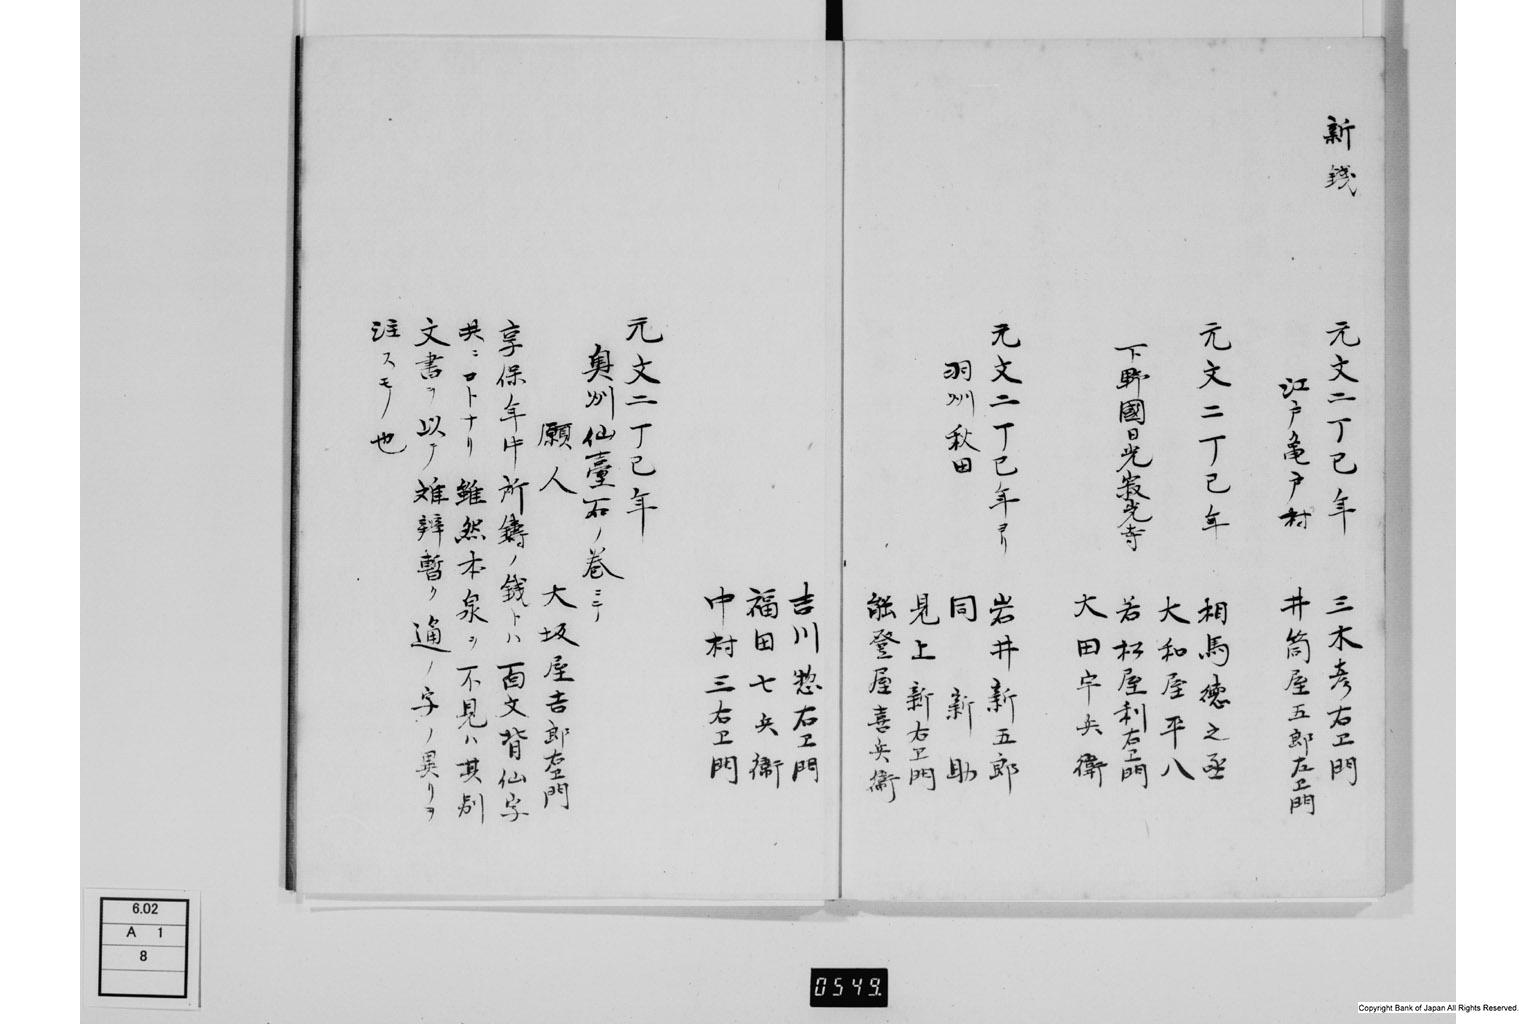 新銭
元文二丁巳年 三木彦右卫門
江戸亀戸村 井筒屋五郎左卫門
元文二丁巳年 相馬徳之丞
大和屋平八
下野國日光寂光寺 若松屋利右卫門
大田宇兵衛
元文二丁巳年ヨリ 岩井新五郎
羽州秋田 同 新助
見上新右卫門
能登屋喜兵衛
吉川惣右卫門
福田七兵衛
中村三右卫門
元文二丁巳年
奥州仙臺石ノ巻ニテ
願人 大坂屋吉郎右卫門
享保年中所鋳ノ銭トハ面文背仙字
共ニロトナリ雖然本泉ヲ不見ハ其別
文書ヲ以テ難辨暫ク通ノ字ノ異リヲ
注スモノ也
6.02
A 1
8
0549.
Copyright Bank of Japan All Rights Reserved.